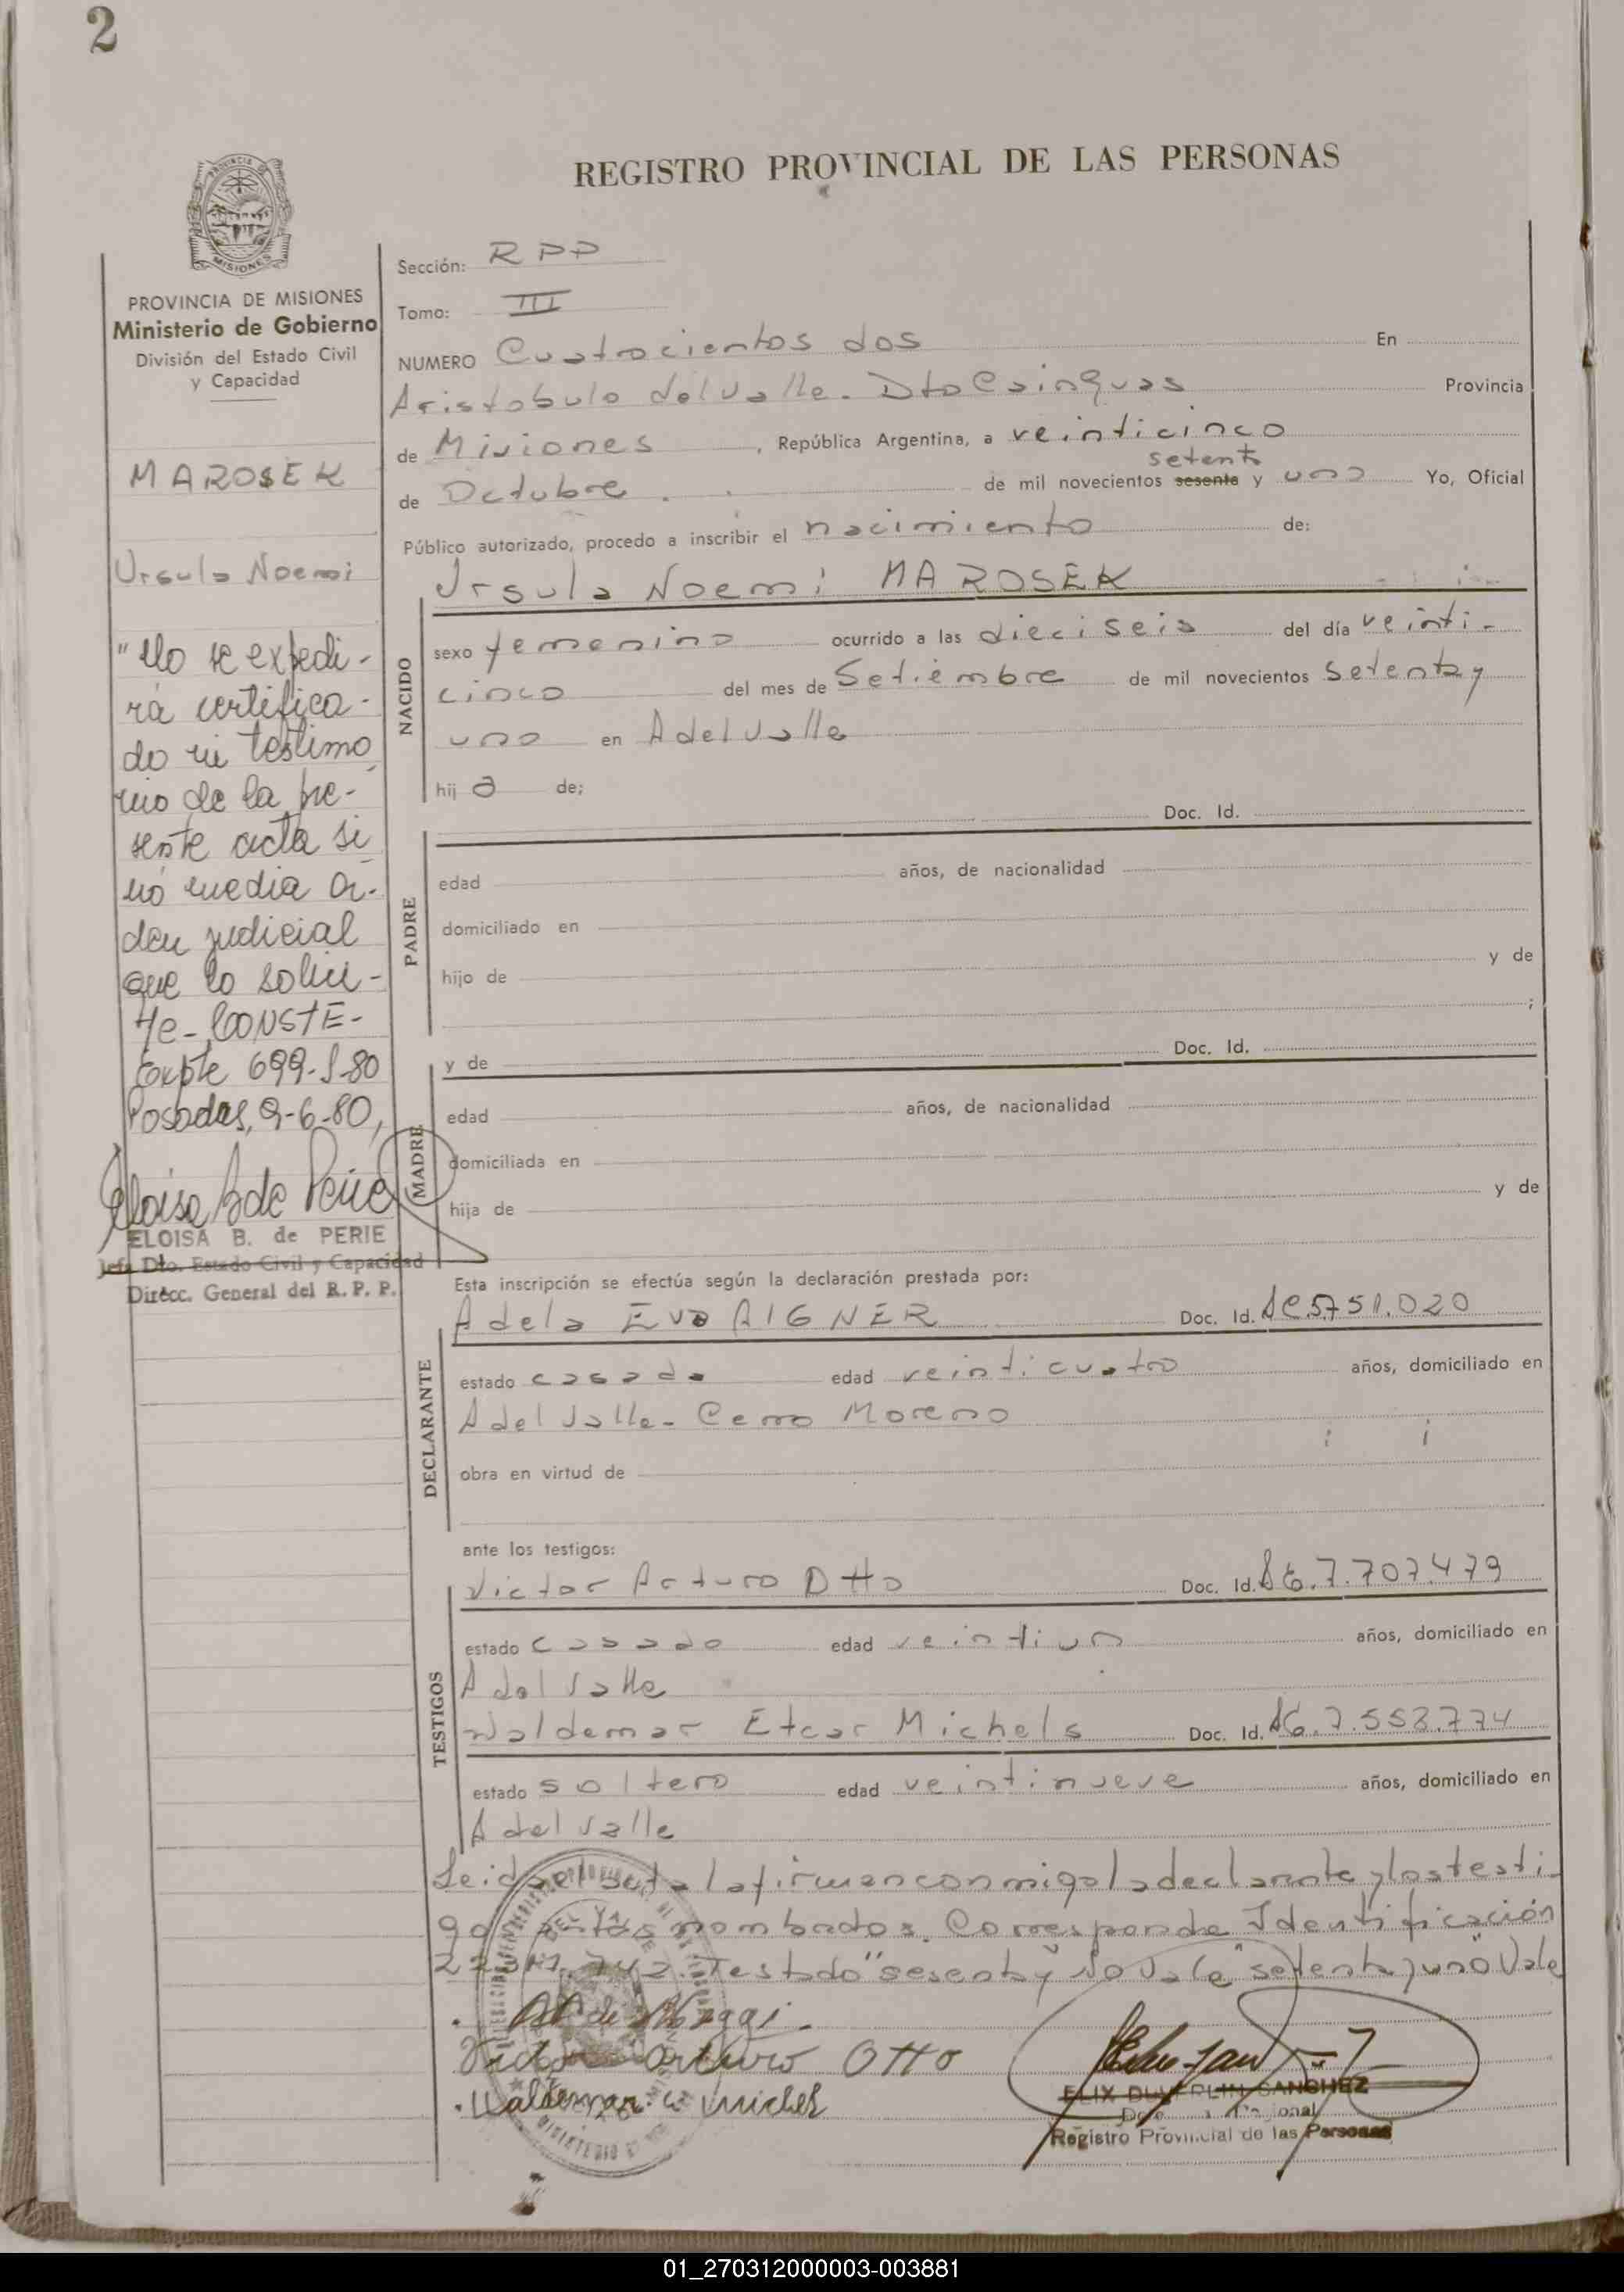 2
REGISTRO PROVINCIAL DE LAS PERSONAS
MISIONES
PROVINCIA DE MISIONES
Ministerio de Gobierno
División del Estado Civil
y Capacidad
MAROSEK
Ursula Noemi
"No se expedi-
rá certifica-
do ni testimo
nio de la pre-
sente acta si
no media or-
den judicial
que lo solici-
te - CONSTE-
Expte 699-S-80
Posadas, 9-6-80,
ELOISA B. de PERIE
Jefa Dto. Estado Civil y Capacidad
Direcc. General del R. P. P.
Sección: RPP
Tomo: III
NUMERO Cuatrocientos dos En
Aristobulo del Valle. Dto Cainguas Provincia
de Misiones , República Argentina, a veinticinco
setenta
de Octubre . de mil novecientos sesenta y uno Yo, Oficial
Público autorizado, procedo a inscribir el nacimiento de:
Ursula Noemi MAROSEK
NACIDO
sexo femenino ocurrido a las dieciseis del día veinti-
cinco del mes de Setiembre de mil novecientos setenta y
uno en A del Valle
hij a de;
Doc. Id.
PADRE
edad años, de nacionalidad
domiciliado en
hijo de y de
;
y de Doc. Id.
MADRE
edad años, de nacionalidad
domiciliada en
hija de y de
Esta inscripción se efectúa según la declaración prestada por:
Adela Eva AIGNER Doc. Id. 5.751.020
DECLARANTE
estado casada edad veinticuatro años, domiciliado en
A del Valle - Cerro Moreno
obra en virtud de
ante los testigos:
Victor Arturo Otto Doc. Id. 7.707.479
TESTIGOS
estado casado edad veintiun años, domiciliado en
A del Valle
Waldemar Etcar Michels Doc. Id. 7.558.774
estado soltero edad veintinueve años, domiciliado en
A del Valle
Leida el acta la firman conmigo la declarante y los testi-
gos nombados. Corresponde Identificación
Testado "sesenta y No Vale "setenta y uno" Vale
Victor Arturo Otto
Waldemar E Michels
FELIX DUVERLIN SANCHEZ
Registro Provincial de las Personas
01_270312000003-003881